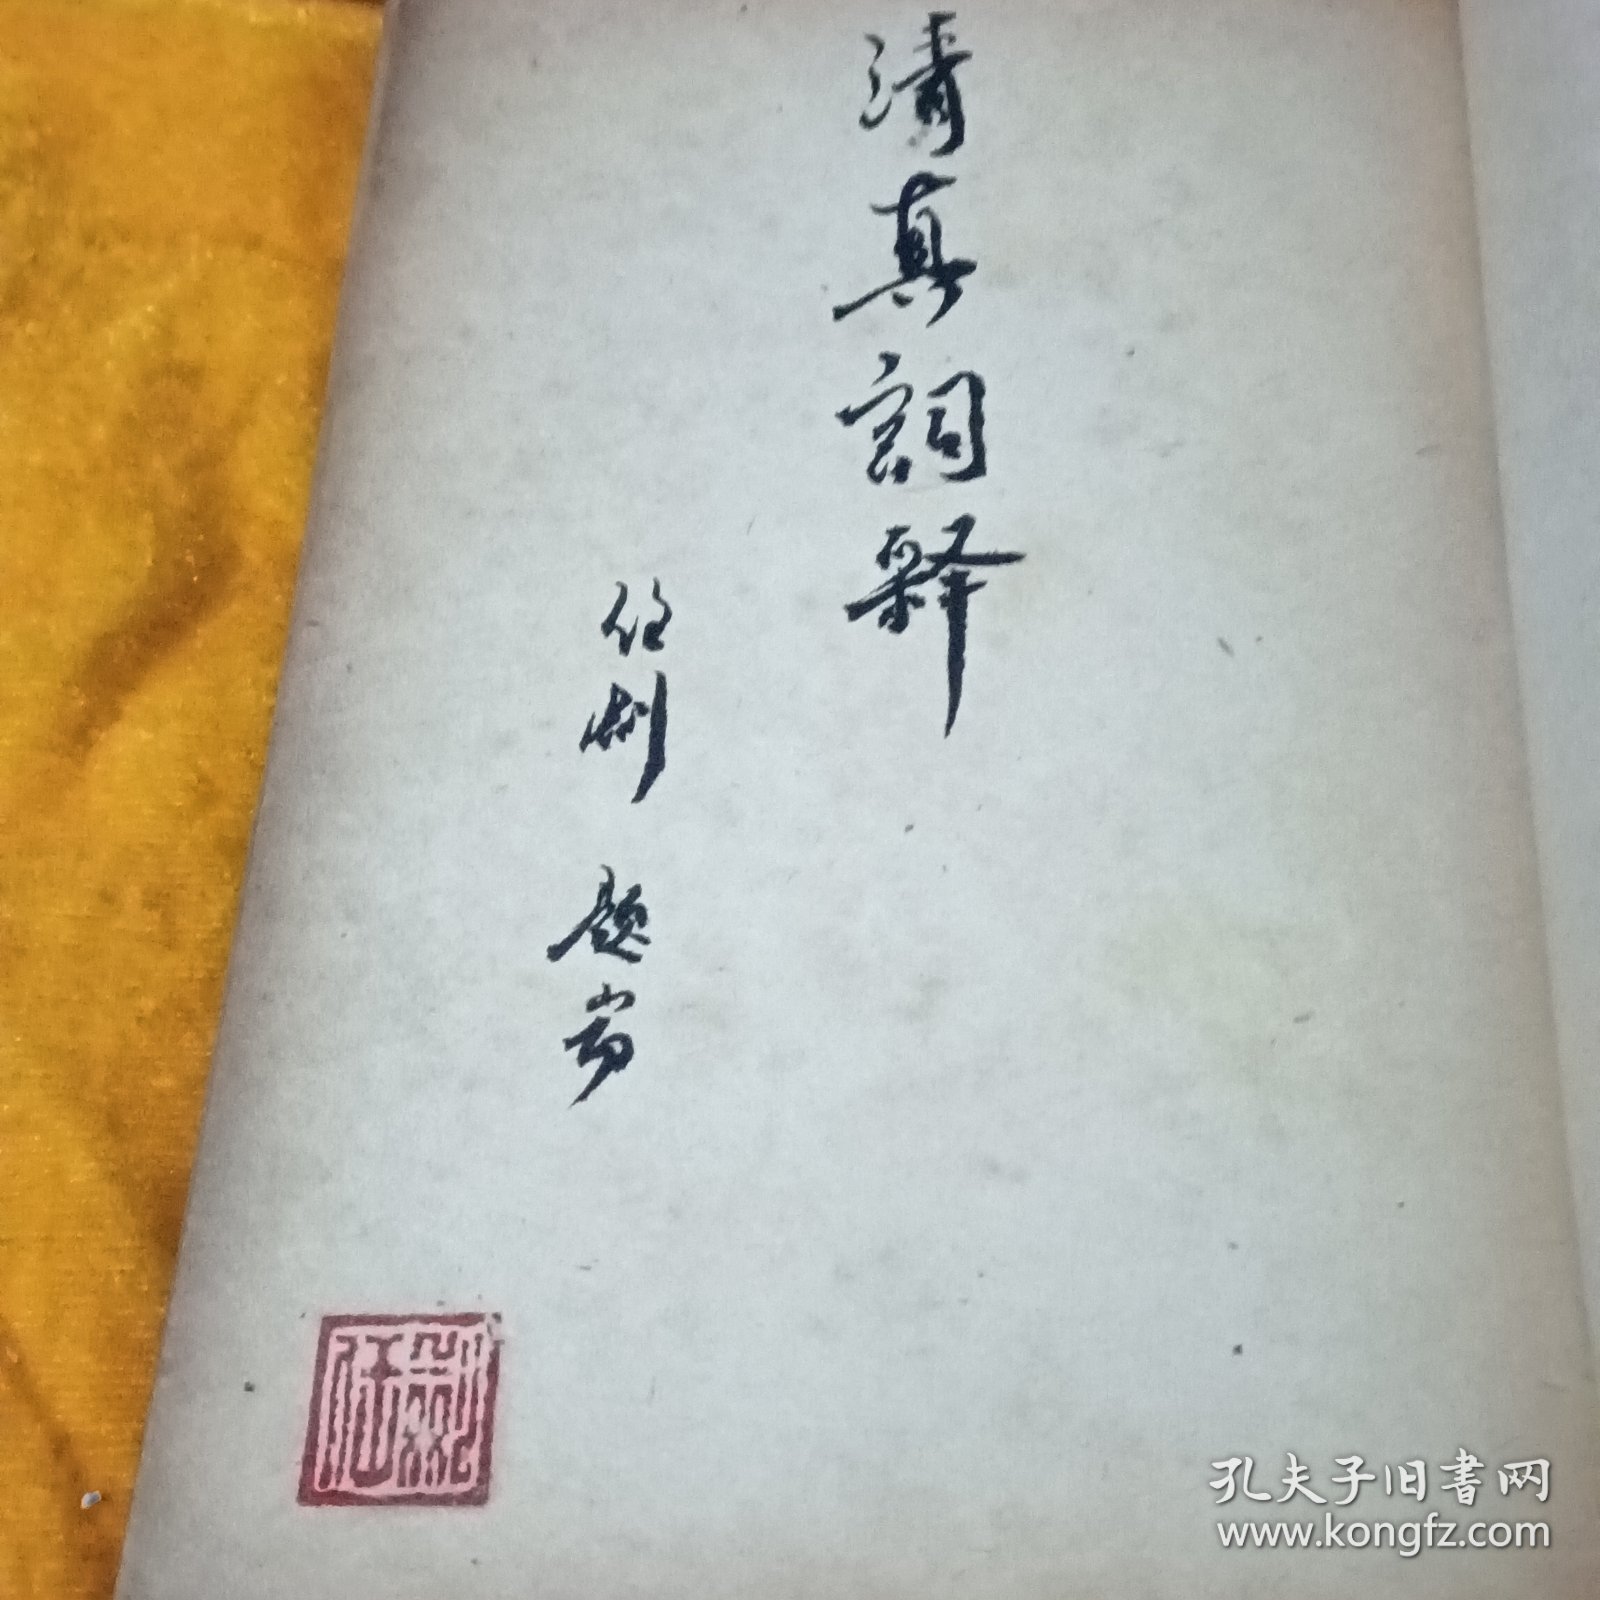 清真詞釋
任刱 題耑
孔夫子旧书网
www.kongfz.com